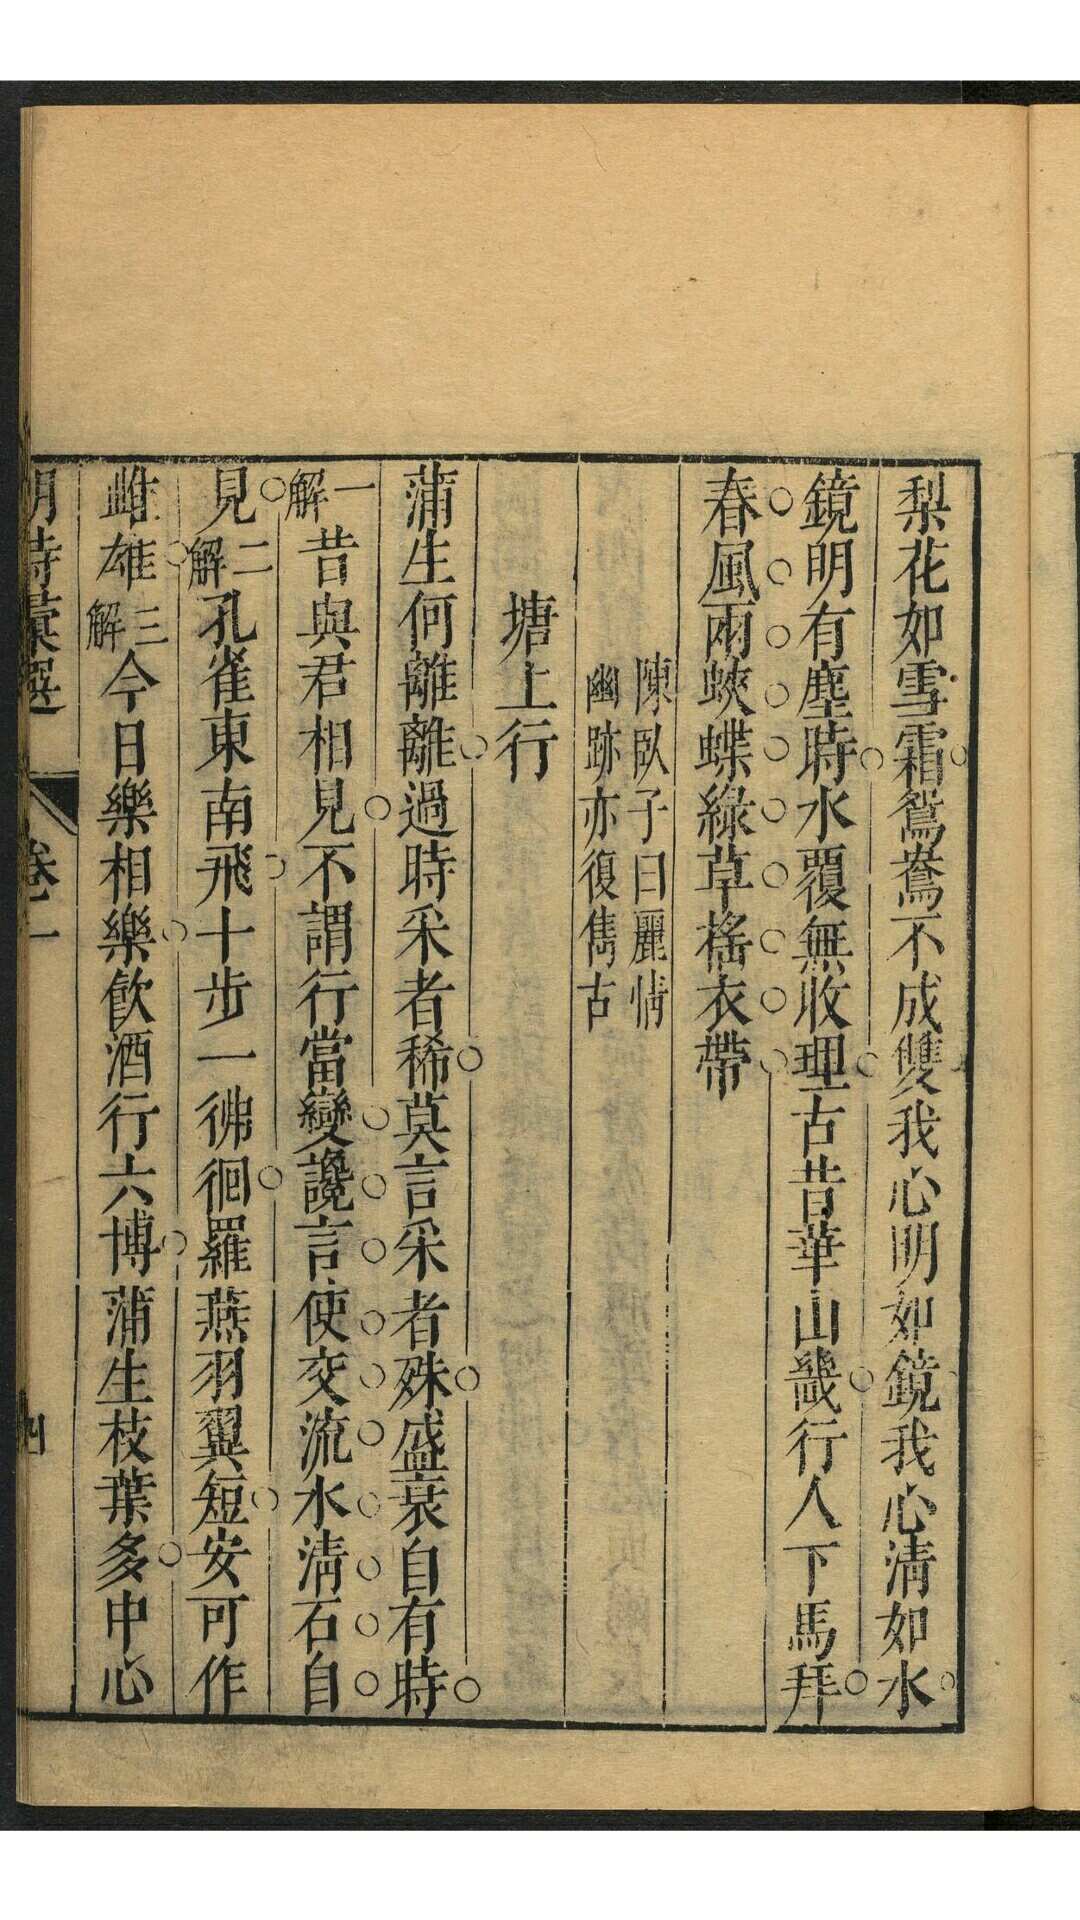 梨花如雪霜鴛鴦不成雙我心明如鏡我心清如水
鏡明有塵時水覆無收理古昔華山畿行人下馬拜
春風兩蛺蝶綠草搖衣帶
陳臥子曰麗情
幽跡亦復雋古
塘上行
蒲生何離離過時采者稀莫言采者殊盛衰自有時
一解昔與君相見不謂行當變讒言使交流水清石自
見二解孔雀東南飛十步一彿徊羅燕羽翼短安可作
雌雄三解今日樂相樂飲酒行六博蒲生枝葉多中心
明詩藁選 卷一 四